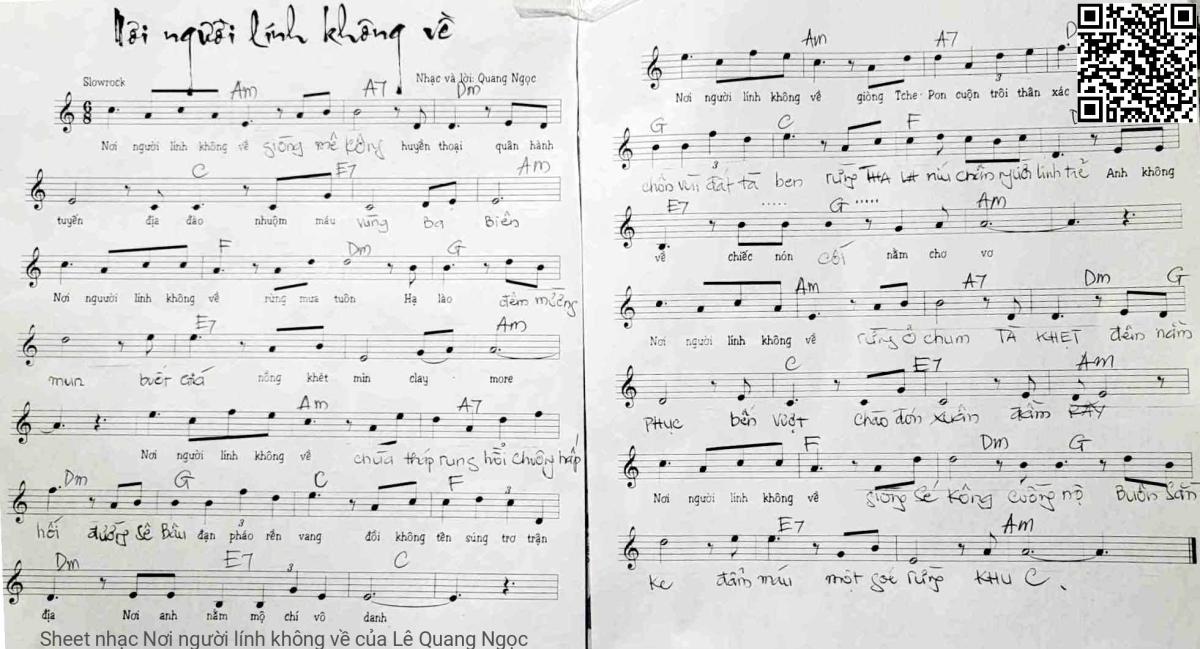 Nơi người lính không về
Slowrock
Nhạc và lời: Quang Ngọc
Am A7 Dm
6 8
Nơi người lính không về giòng mê Kông huyền thoại quân hành
C E7 Am
tuyến địa đào nhuộm máu vùng Ba Biên
F Dm G
Nơi nguười lính không về rừng mưa tuôn Hạ lào đêm mường
E7 Am
mun buốt giá nồng khét mìn clay more
Am A7
Nơi người lính không về chùa tháp rung hồi chuông hấp
Dm G C F
3 3
hối đường Sê Bầu đạn pháo rền vang đồi không tên súng trơ trận
Dm E7 C
3
địa Nơi anh nằm mộ chí vô danh
Am A7 D
3
Nơi người lính không về giòng Tche-Pon cuộn trôi thân xác
G C F D
3
chôn vùi đất tà ben rừng núi chôn người lính trẻ Anh không
E7 ..... G ..... Am
về chiếc nón cối nằm chơ vơ
Am A7 Dm G
Nơi người lính không về rừng Ô chum TÀ KHẸT đêm nằm
C E7 Am
PHỤC bến vượt chào đón xuân đẫm
F Dm G
Nơi người lính không về giòng Sê Kông cuồng nộ Buôn Sẵn
E7 Am
Ke đẫm máu một góc rừng KHU C.
Sheet nhạc Nơi người lính không về của Lê Quang Ngọc